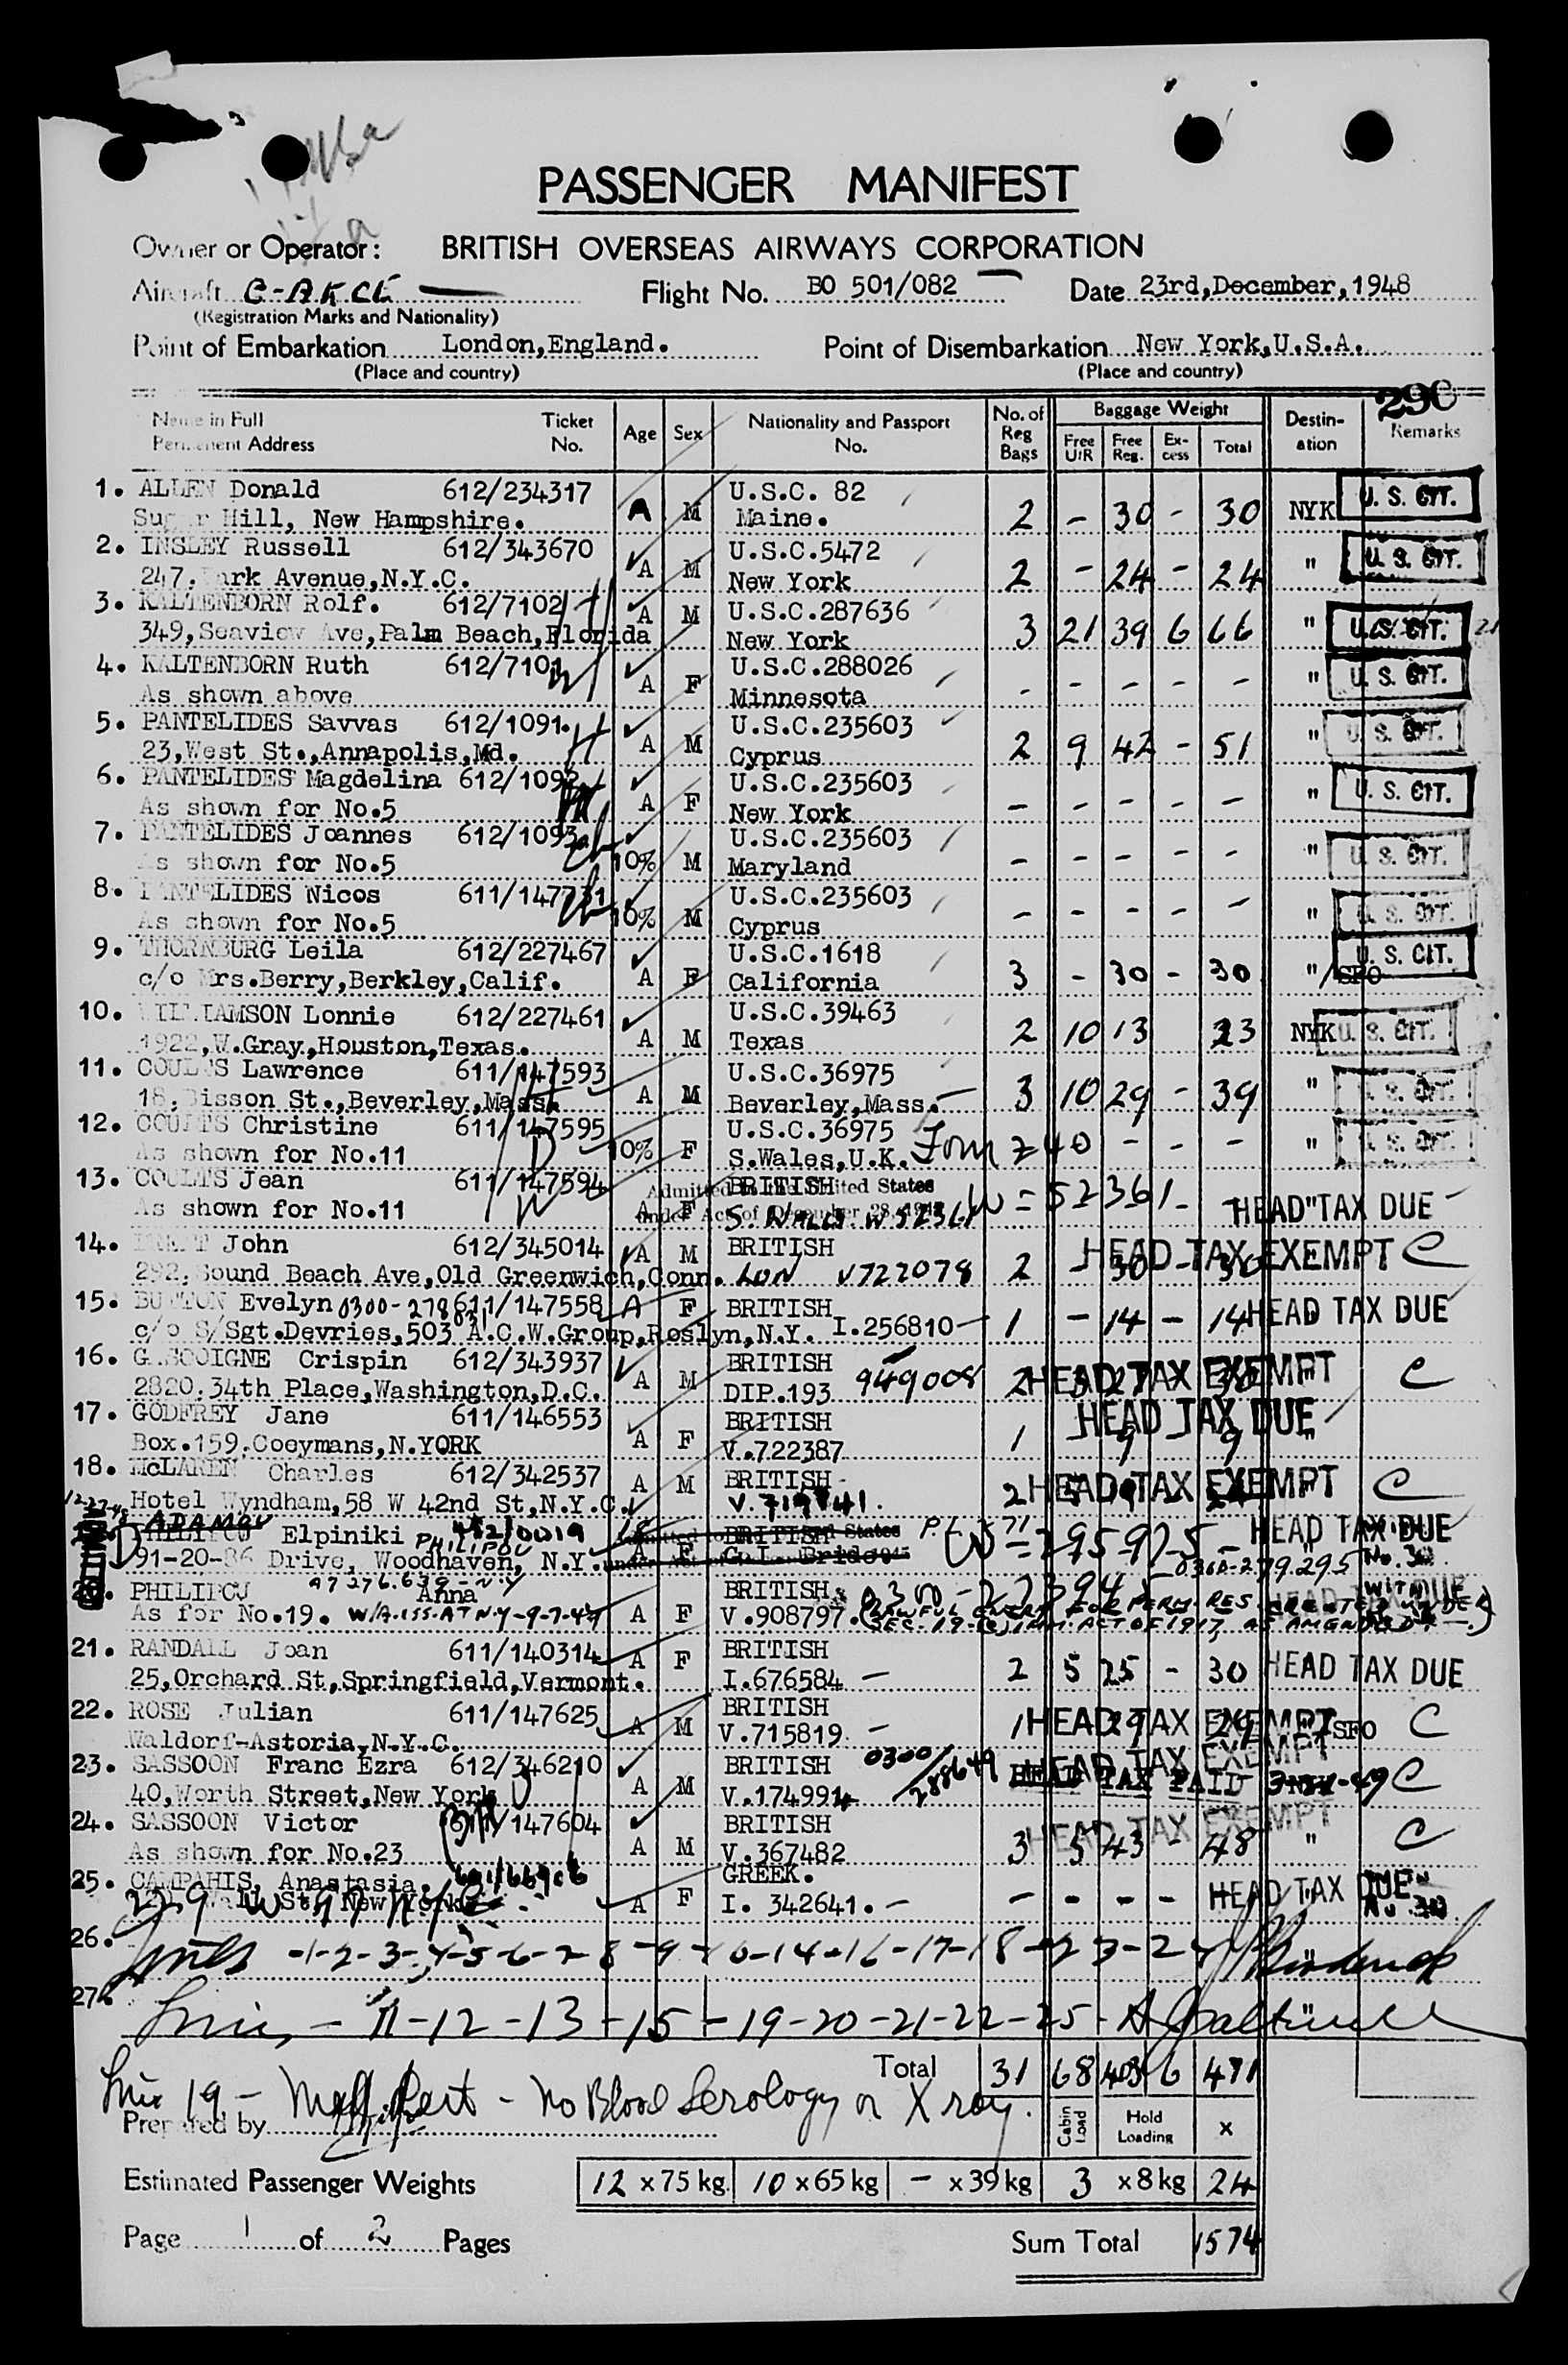 PASSENGER MANIFEST
Owner or Operator: BRITISH OVERSEAS AIRWAYS CORPORATION
Aircraft Flight No. BO 501/082 Date 23rd, December, 1948
(Registration Marks and Nationality)
Point of Embarkation London, England. Point of Disembarkation New York, U.S.A.
(Place and country) (Place and country)
290
Name in Full Ticket Age Sex Nationality and Passport No. of Baggage Weight Destin- Remarks
Permanent Address No. No. Reg Bags Free U/R Free Reg. Ex-cess Total ation
1. ALLEN Donald 612/234317 U.S.C. 82 U. S. CIT.
Sugar Hill, New Hampshire. A M Maine. 2 - 30 - 30 NYK
2. INSLEY Russell 612/343670 U.S.C.5472 U. S. CIT.
247, Park Avenue, N.Y.C. A M New York 2 - 24 - 24 "
3. KALTENBORN Rolf. 612/7102 A M U.S.C.287636
349, Seaview Ave, Palm Beach, Florida New York 3 21 39 6 66 " U. S. CIT.
4. KALTENBORN Ruth 612/7101 U.S.C.288026
As shown above A F Minnesota - - - - - " U. S. CIT.
5. PANTELIDES Savvas 612/1091. U.S.C.235603
23, West St., Annapolis, Md. A M Cyprus 2 9 42 - 51 " U. S. CIT.
6. PANTELIDES Magdelina 612/1092 U.S.C.235603
As shown for No.5 A F New York - - - - - " U. S. CIT.
7. PANTELIDES Joannes 612/1093 U.S.C.235603
As shown for No.5 10% M Maryland - - - - - " U. S. CIT.
8. PANTELIDES Nicos 611/147731 U.S.C.235603
As shown for No.5 10% M Cyprus - - - - - " U. S. CIT.
9. THORNBURG Leila 612/227467 U.S.C.1618 U. S. CIT.
c/o Mrs.Berry, Berkley, Calif. A F California 3 - 30 - 30 "/SFO
10. WILLIAMSON Lonnie 612/227461 U.S.C.39463
1922, W.Gray, Houston, Texas. A M Texas 2 10 13 23 NYK U. S. CIT.
11. COULTS Lawrence 611/147593 U.S.C.36975
18, Sisson St., Beverley, Mass. A M Beverley, Mass. 3 10 29 - 39 " U. S. CIT.
12. COULTS Christine 611/147595 U.S.C.36975
As shown for No.11 10% F S.Wales, U.K. Form 240 - - - " U. S. CIT.
13. COULTS Jean 611/147594 Admitted to the United States BRITISH W = 52361-
As shown for No.11 A F under Act of December 28, 1945 S. WALES W 52361 " HEAD TAX DUE
14. John 612/345014 A M BRITISH HEAD TAX EXEMPT C
292, Sound Beach Ave, Old Greenwich, Conn. LON V722078 2 - 30 - 30
15. BUTTON Evelyn 611/147558 A F BRITISH HEAD TAX DUE
c/o S/Sgt.Devries, 503 A.C.W.Group, Roslyn, N.Y. I.256810 1 - 14 - 14
16. GASCOIGNE Crispin 612/343937 BRITISH
2820, 34th Place, Washington, D.C. A M DIP.193 949008 2 HEAD TAX EXEMPT C
17. GODFREY Jane 611/146553 BRITISH HEAD TAX DUE
Box.159, Coeymans, N.YORK A F V.722387 1 9 9 "
18. McLAREN Charles 612/342537 A M BRITISH HEAD TAX EXEMPT C
Hotel Wyndham, 58 W 42nd St, N.Y.C. V.719841. 2
ADAMOU
PHILIPOU Elpiniki PHILIPOU BRITISH HEAD TAX DUE
91-20-86 Drive, Woodhaven, N.Y. A F G.I. Bride W = 295975- 0300-279295 No.
A7276.639-N.Y
20. PHILIPOU Anna BRITISH
As for No.19. W/A-ISS.AT N.Y-9-7-49 A F V.908797. (LAWFUL ENTRY FOR PERM. RES. CREATED UNDER SEC. 19-(C) IMM. ACT OF 1917, AS AMENDED)
21. RANDALL Joan 611/140314 A F BRITISH
25, Orchard St, Springfield, Vermont. I.676584 2 5 25 - 30 HEAD TAX DUE
22. ROSE Julian 611/147625 BRITISH
Waldorf-Astoria, N.Y.C. A M V.715819 1 HEAD TAX EXEMPT SFO C
23. SASSOON Franc Ezra 612/346210 BRITISH 0300/288649 HEAD TAX EXEMPT
40, Worth Street, New York A M V.174991 HEAD TAX PAID C
24. SASSOON Victor 611/147604 BRITISH HEAD TAX EXEMPT
As shown for No.23 A M V.367482 3 5 43 - 48 " C
25. CAMPAHIS, Anastasia. GREEK.
Wall St. New York A F I. 342641. - - - - HEAD TAX DUE
26. Lines -1-2-3-4-5-6-7-8-9-10-14-16-17-18-23-24
27. Lines - 11-12-13-15-19-20-21-22-25-
Total 31 68 403 6 471
Line 19 - No Blood Serology or Xray.
Prepared by Cabin Load Hold Loading x
Estimated Passenger Weights 12 x75 kg. 10 x65 kg - x39 kg 3 x8 kg 24
Page 1 of 2 Pages Sum Total 1574